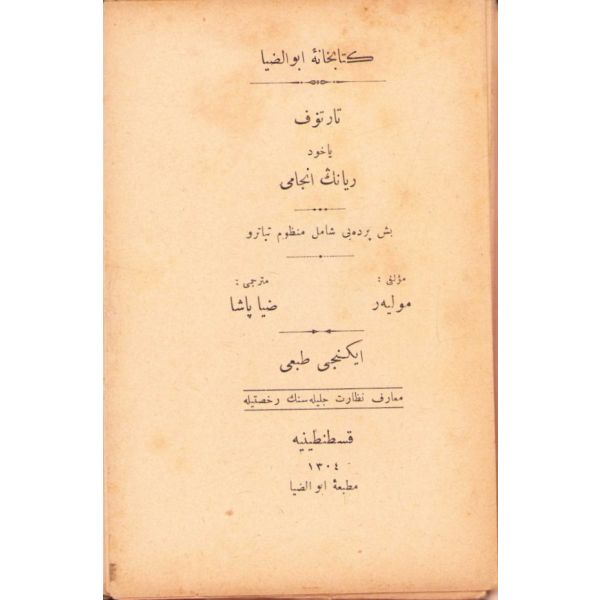 كتابخانهٔ ابوالضيا
تارتوف
ياخود
ريانڭ انجامی
بش پرده‌یی شامل منظوم تياترو
مؤلفی :
مترجمی :
مولیەر
ضیا پاشا
ایکنجی طبعی
معارف نظارت جلیله‌سنك رخصتیله
قسطنطینیه
١٣٠٤
مطبعهٔ ابوالضیا